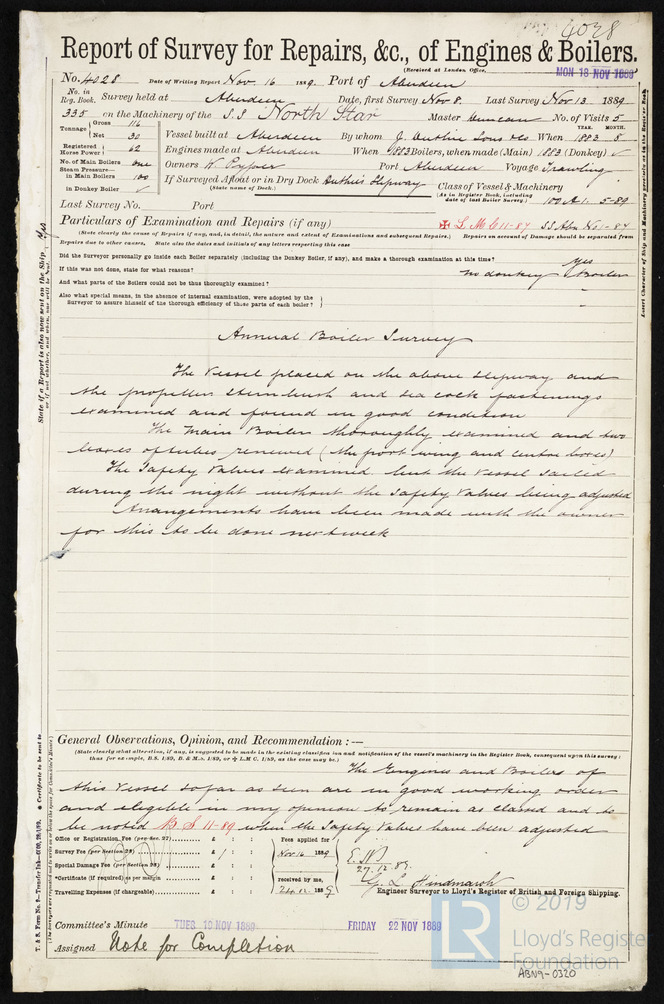 4028
Report of Survey for Repairs, &c., of Engines & Boilers.
(Received at London Office, MON 18 NOV 1889
No. 4028 Date of Writing Report Nov. 16 1889. Port of Aberdeen
No. in Reg. Book. Survey held at Aberdeen Date, first Survey Nov 8. Last Survey Nov 13 1889
335 on the Machinery of the S.S North Star Master Duncan No. of Visits 5
Tonnage Gross 116 Net 30
Vessel built at Aberdeen By whom J. Duthie Sons & Co When YEAR. 1883 MONTH. 8
Registered Horse Power 62 Engines made at Aberdeen When 1883 Boilers, when made (Main) 1883 (Donkey) ✓
No. of Main Boilers one Owners W Pyper Port Aberdeen Voyage Trawling
Steam Pressure— in Main Boilers 100 If Surveyed Afloat or in Dry Dock Duthies Slipway
(State name of Dock.)
Class of Vessel & Machinery
(As in Register Book, including date of last Boiler Survey.) 100 A1. 5-89
in Donkey Boiler ✓
Last Survey No. Port
Particulars of Examination and Repairs (if any) ✠ L M C 11-87 SS Abn No 1-87
(State clearly the cause of Repairs if any, and, in detail, the nature and extent of Examinations and subsequent Repairs.) Repairs on account of Damage should be separated from
Repairs due to other causes, State also the dates and initials of any letters respecting this case
Did the Surveyor personally go inside each Boiler separately (including the Donkey Boiler, if any), and make a thorough examination at this time? Yes
If this was not done, state for what reasons? no donkey Boiler
And what parts of the Boilers could not be thus thoroughly examined?
Also what special means, in the absence of internal examination, were adopted by the
Surveyor to assure himself of the thorough efficiency of those parts of each boiler?
Annual Boiler Survey
The Vessel placed on the above slipway and
the propeller sternbush and sea cock fastenings
examined and found in good condition
The Main Boiler thoroughly examined and two
boxes of tubes renewed (the port wing and centre boxes)
The Safety Valves examined but the Vessel sailed
during the night without the Safety Valves being adjusted
Arrangements have been made with the owner
for this to be done next week
General Observations, Opinion, and Recommendation :—
(State clearly what alteration, if any, is suggested to be made in the existing classification and notification of the vessel's machinery in the Register Book, consequent upon this survey:
thus for example, B.S. 1/89, B. & M.S. 1/89, or ✠ L.M C. 1/89, as the case may be.)
The Engines and Boilers of
this Vessel so far as seen are in good working order
and eligible in my opinion to remain as classed and to
be noted B S 11-89 when the Safety Valves have been adjusted
Office or Registration Fee (per Sec. 27) £ : :
Survey Fee (per Section 28) £ : :
Special Damage Fee (per Section 28) £ : :
*Certificate (if required) as per margin £ : :
Travelling Expenses (if chargeable) £ : :
Fees applied for Nov 16 1889
received by me, 24.12. 1889
27.12.89.
G. L. Hindmarsh
Engineer Surveyor to Lloyd's Register of British and Foreign Shipping.
Committee's Minute TUES 19 NOV 1889 FRIDAY 22 NOV 1889
Assigned Note for Completion
State if a Report is also now sent on the Ship Yes
T. & S. Form No. 9
* Certificate to be sent to
© 2019
LR
Lloyd's Register
Foundation
ABN9-0320